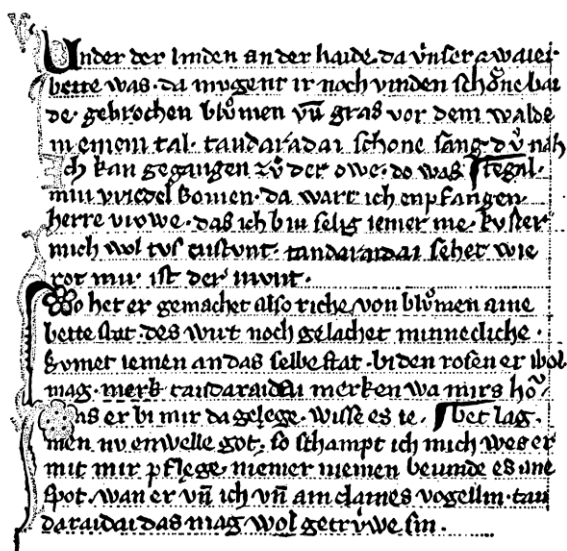 Under der linden an der haide. da v̊nser zwaier
bette was. da mugent ir noch vinden schone bai
de. gebrochen blůmen vn̄ gras vor dem walde
in einem tal. tandaradai schone sang dv̊ nah
Ich kan gegangen zv̊ der owe. do was stegal.
min vriedel komen. da wart ich enpfangen.
herre vrowe. das ich bin selig iemer me. kuster
mich wol tvs entstvnt. tandaradai sehet wie
rot mir ist der mvnt.
Do het er gemachet also riche von blůmen aine
bette stat. des wirt noch gelachet minnecliche.
kumet iemen an das selbe stat. bi den rosen er wol
mag. merk tandaraidai merken wa mirs hő
Das er bi mir da gelege. wisse es ie. bet lag.
men. nv enwelle got. so schampt ich mich wes er
mit mir pflege. niemer niemen bevinde es ane
spot. wan er vn̄ ich vn̄ ain claines vogellin. tan
daraidai das mag wol getrywe sin.